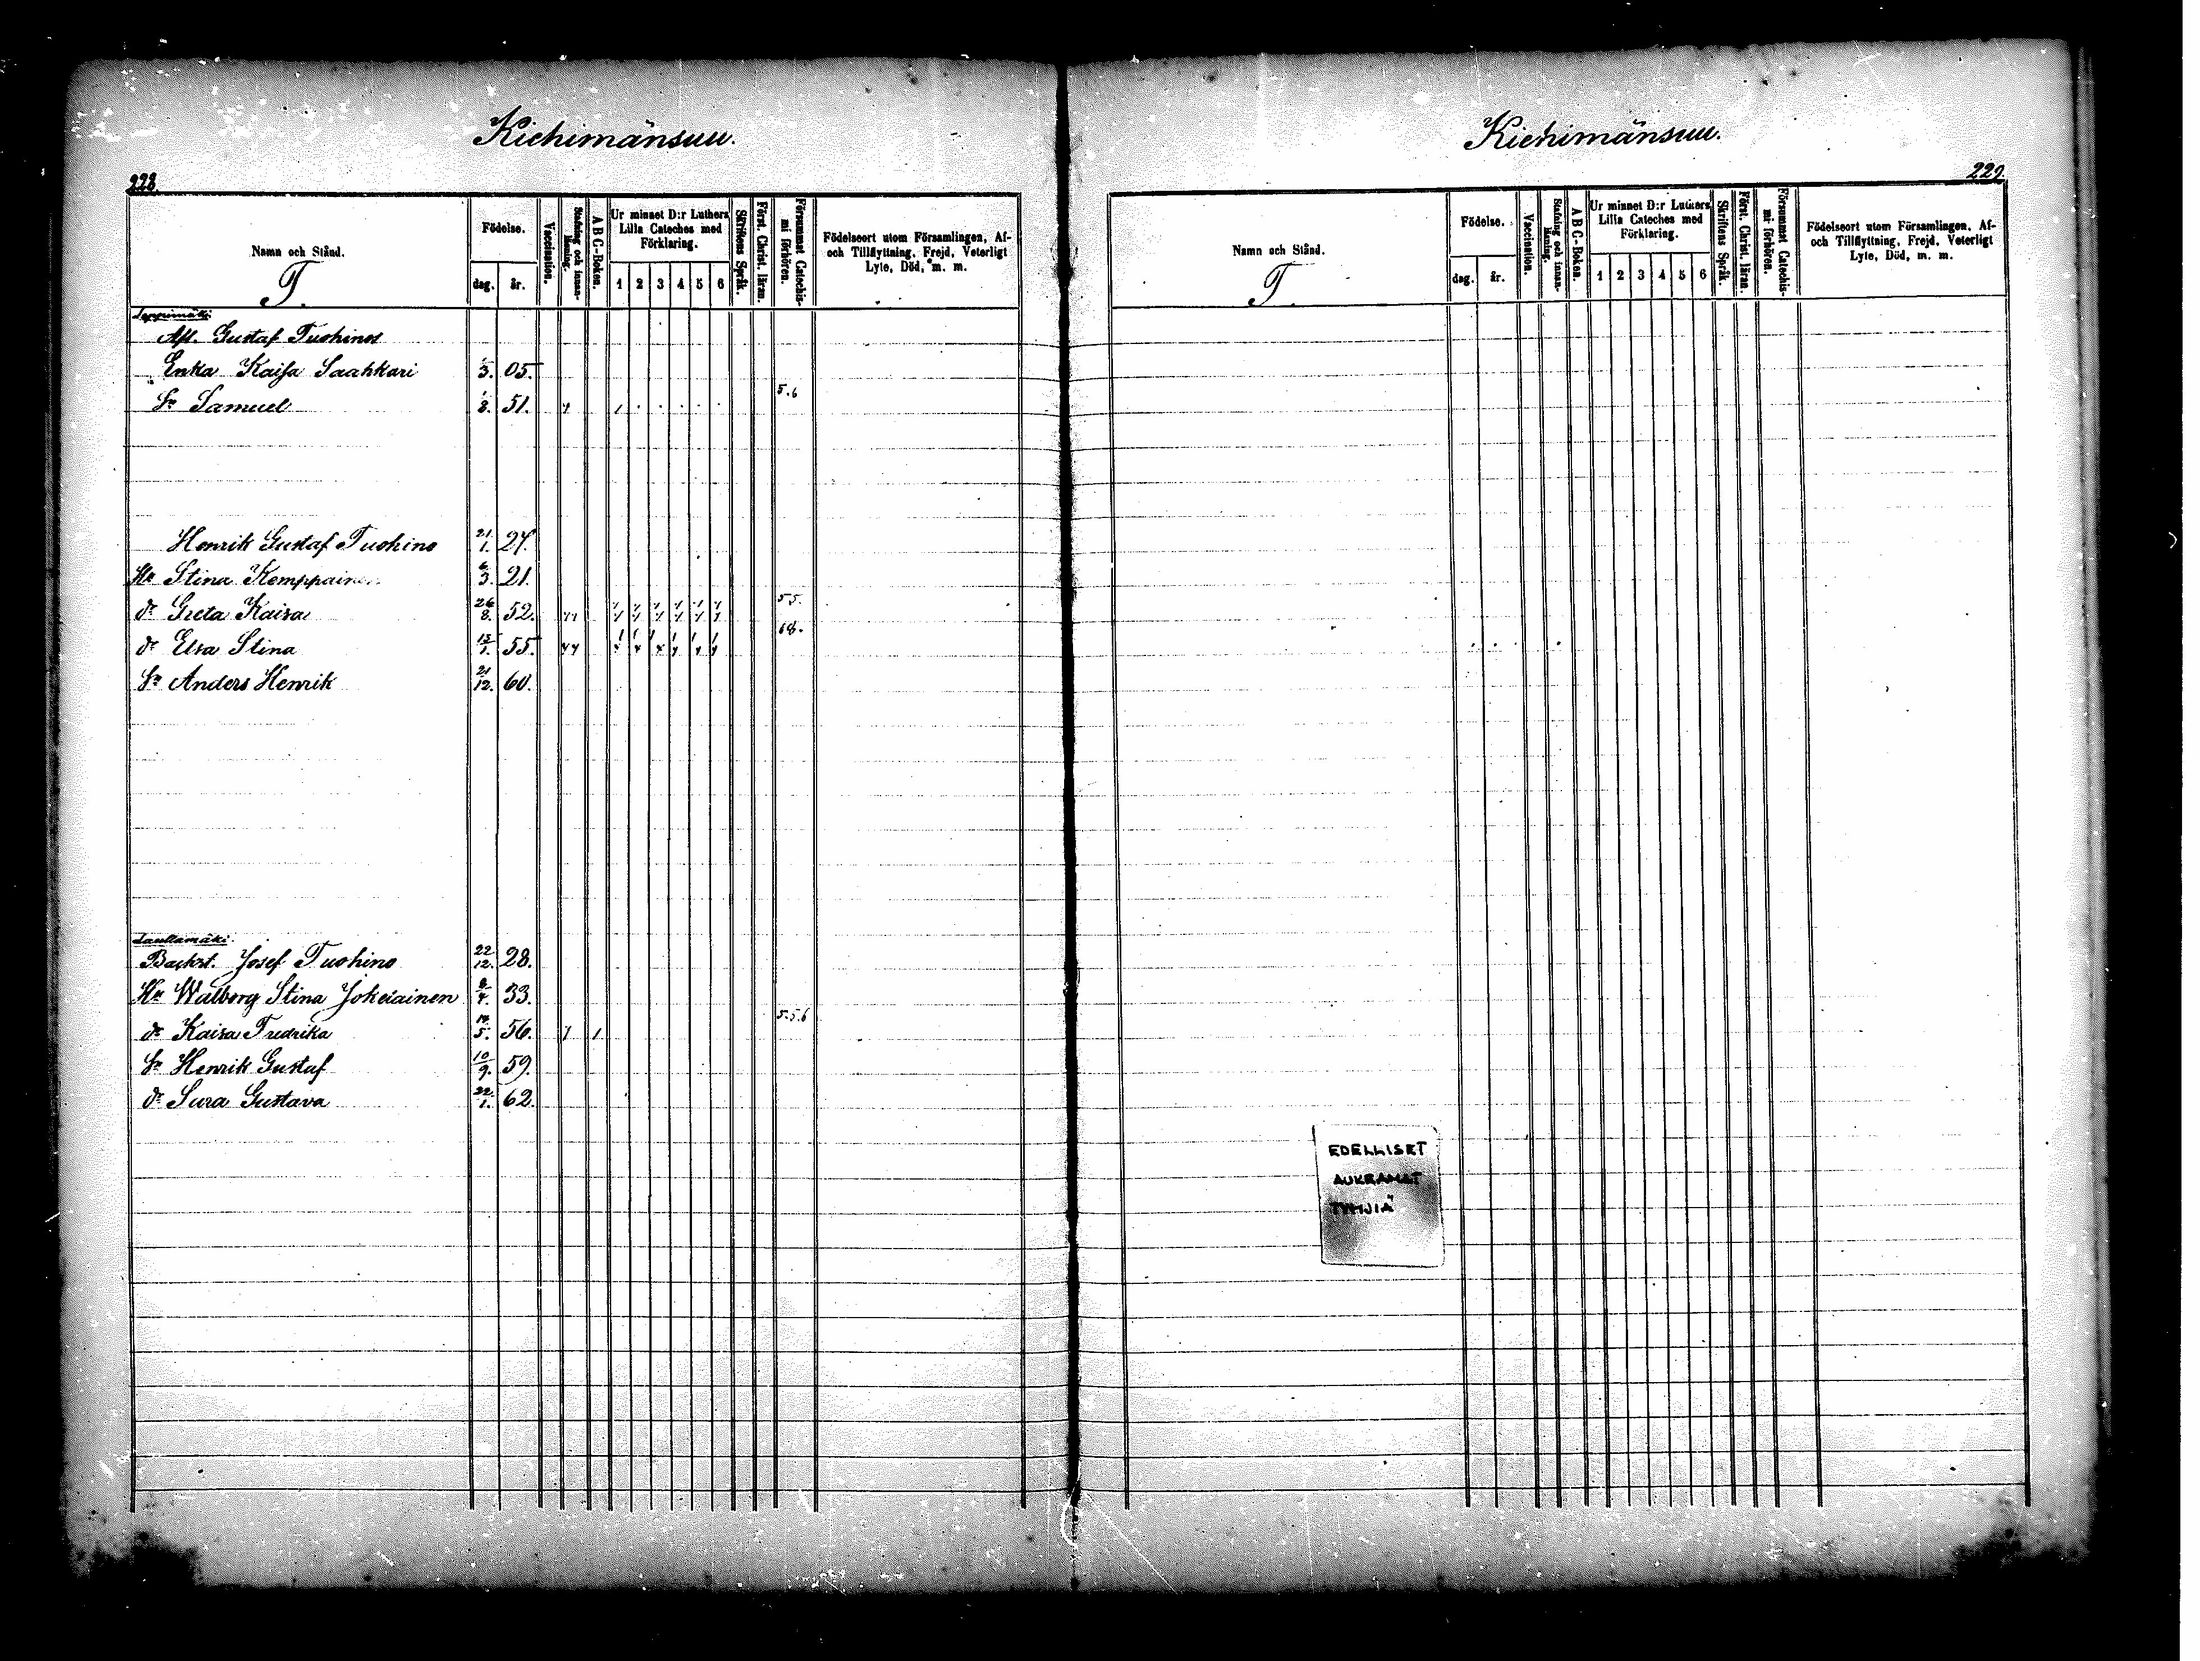 Kiehimänsuu.
228.
Namn och Stånd.
T.
Födelse.
dag. år.
Vaccination.
Stafning och innanläsning.
A B C-Boken.
Ur minnet D:r Luthers
Lilla Cateches med
Förklaring.
1 2 3 4 5 6
Skriftens Språk.
Först. Christ. läran.
Försummat Catechismi förhören.
Födelseort utom Församlingen, Af-
och Tillflyttning, Frejd, Veterligt
Lyte, Död, m. m.
Leppimäki
Afl. Gustaf Tuohino
Enka Kaisa Saahkari 1/3. 05.
5.6
Sn Samuel 1/8. 51.
Henrik Gustaf Tuohino 21/1. 24.
Hu Stina Kemppainen 6/3. 21.
55.
dr Greta Kaisa 26/8. 52.
68.
dr Elsa Stina 15/1. 55.
Sn Anders Henrik 21/12. 60.
Lauttamäki
Backst. Josef Tuohino 22/12. 28.
Hu Walborg Stina Jokelainen 8/4. 33.
5.5.6
dr Kaisa Fredrika 5. 56.
Sn Henrik Gustaf 10/9. 59.
dr Sura Gustava 22/1. 62.
Kiehimänsuu.
229.
Namn och Stånd.
T.
Födelse.
dag. år.
Vaccination.
Stafning och innanläsning.
A B C-Boken.
Ur minnet D:r Luthers
Lilla Cateches med
Förklaring.
1 2 3 4 5 6
Skriftens Språk.
Först. Christ. läran.
Försummat Catechismi förhören.
Födelseort utom Församlingen, Af-
och Tillflyttning, Frejd, Veterligt
Lyte, Död, m. m.
EDELLISET
AUKEAMAT
TYHJIÄ